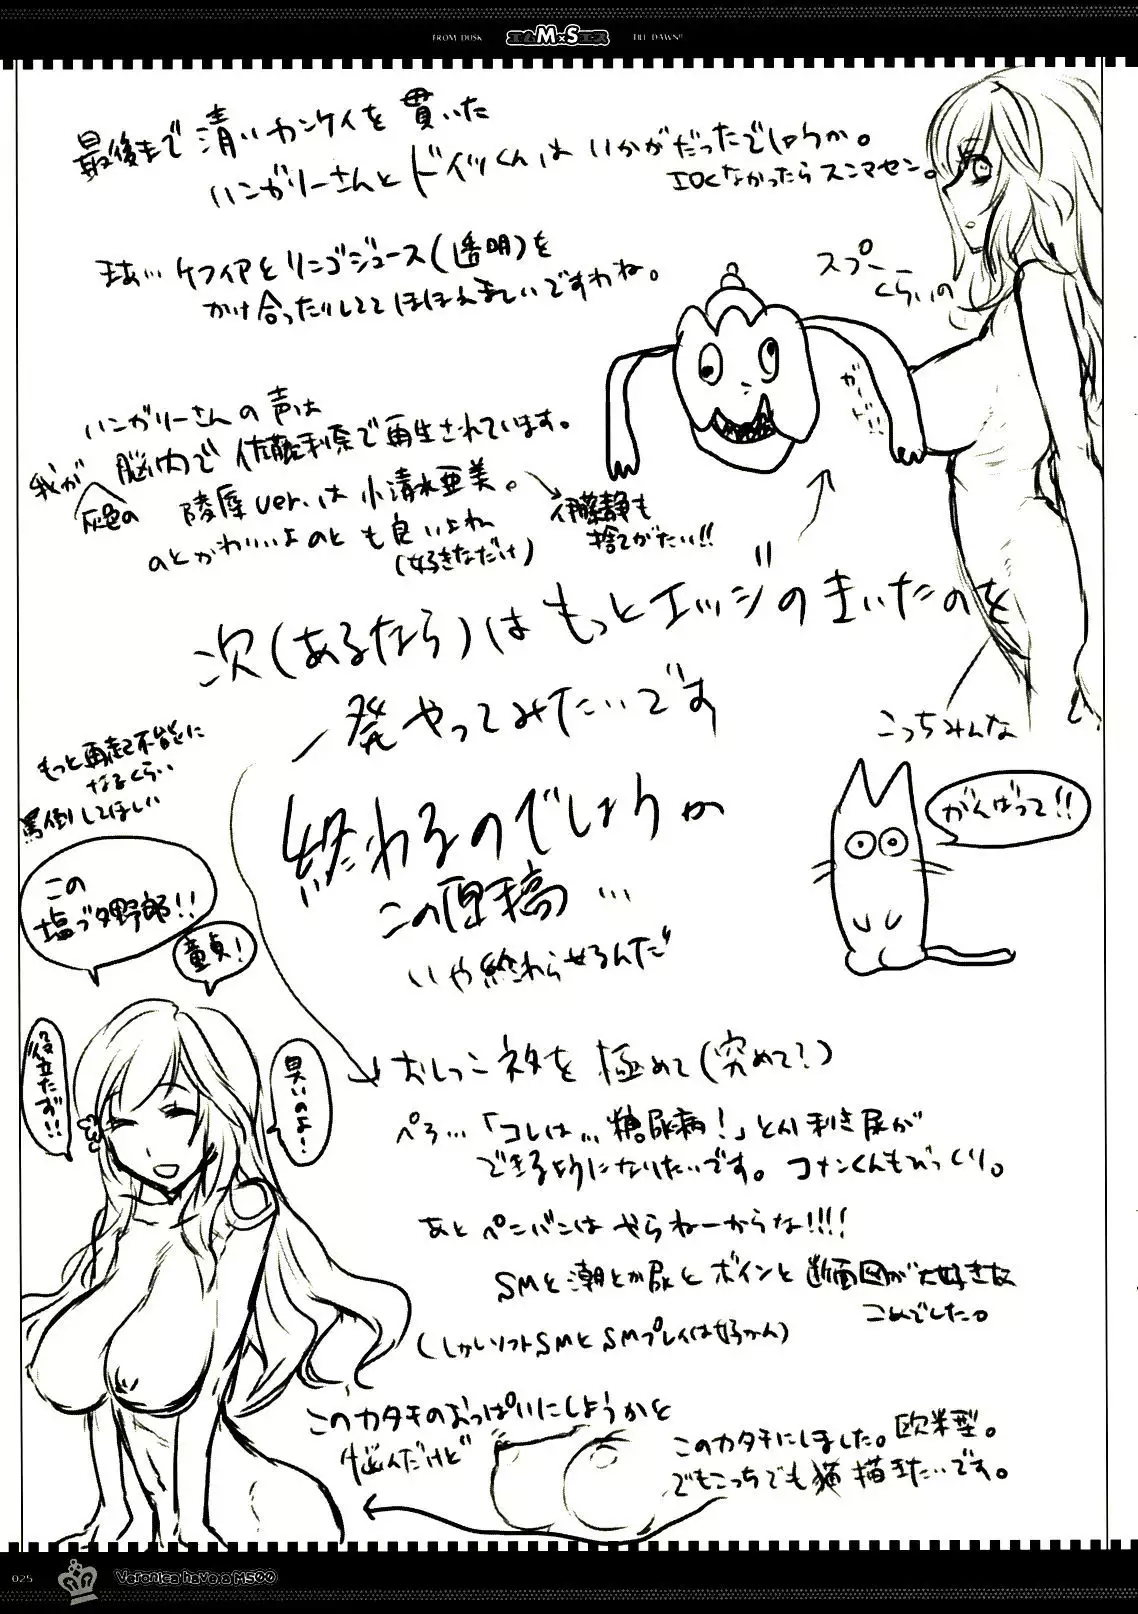 FROM DUSK エムM×Sエス TILL DAWN!!
最後まで清いカンケイを貫いた
ハンガリーさんとドイツくんは いかがだったでしょうか。
エロくなかったらスンマセン。
まあ… ケフィアとリンゴジュース(透明)を
かけ合ったりしてて ほほえましいですわね。
スプー
くらいの
ハンガリーさんの声は
我が 灰色の 脳内で 佐藤利奈で再生されています。
陵辱ver.は 小清水亜美。
のとかわいいよのとも良いよね
(好きなだけ)
伊藤静も
捨てがたい!!
次(あるなら)は もっとエッジのきいたのを
一発やってみたいです
もっと再起不能に
なるくらい
罵倒してほしい
こっちみんな
がんばって!!
終わるのでしょうか
この原稿…
いや終わらせるんだ
この
塩ブタ野郎!!
童貞!
役立たず!!
臭いのよ…
おしっこネタを 極めて(究めて?)
ペろ…「コレは… 糖尿病!」とか利き尿が
できるようになりたいです。コナンくんもびっくり。
あと ペニバンは やらねーからな!!!!
SMと潮とか尿とボインと断面図が大好きな
こめでした。
(しかしソフトSMとSMプレイは好かん)
このカタチのおっぱいにしようかと
悩んだけど
このカタチにしました。欧米型。
でもこっちでも猫描きたいです。
025 Veronica have a M500